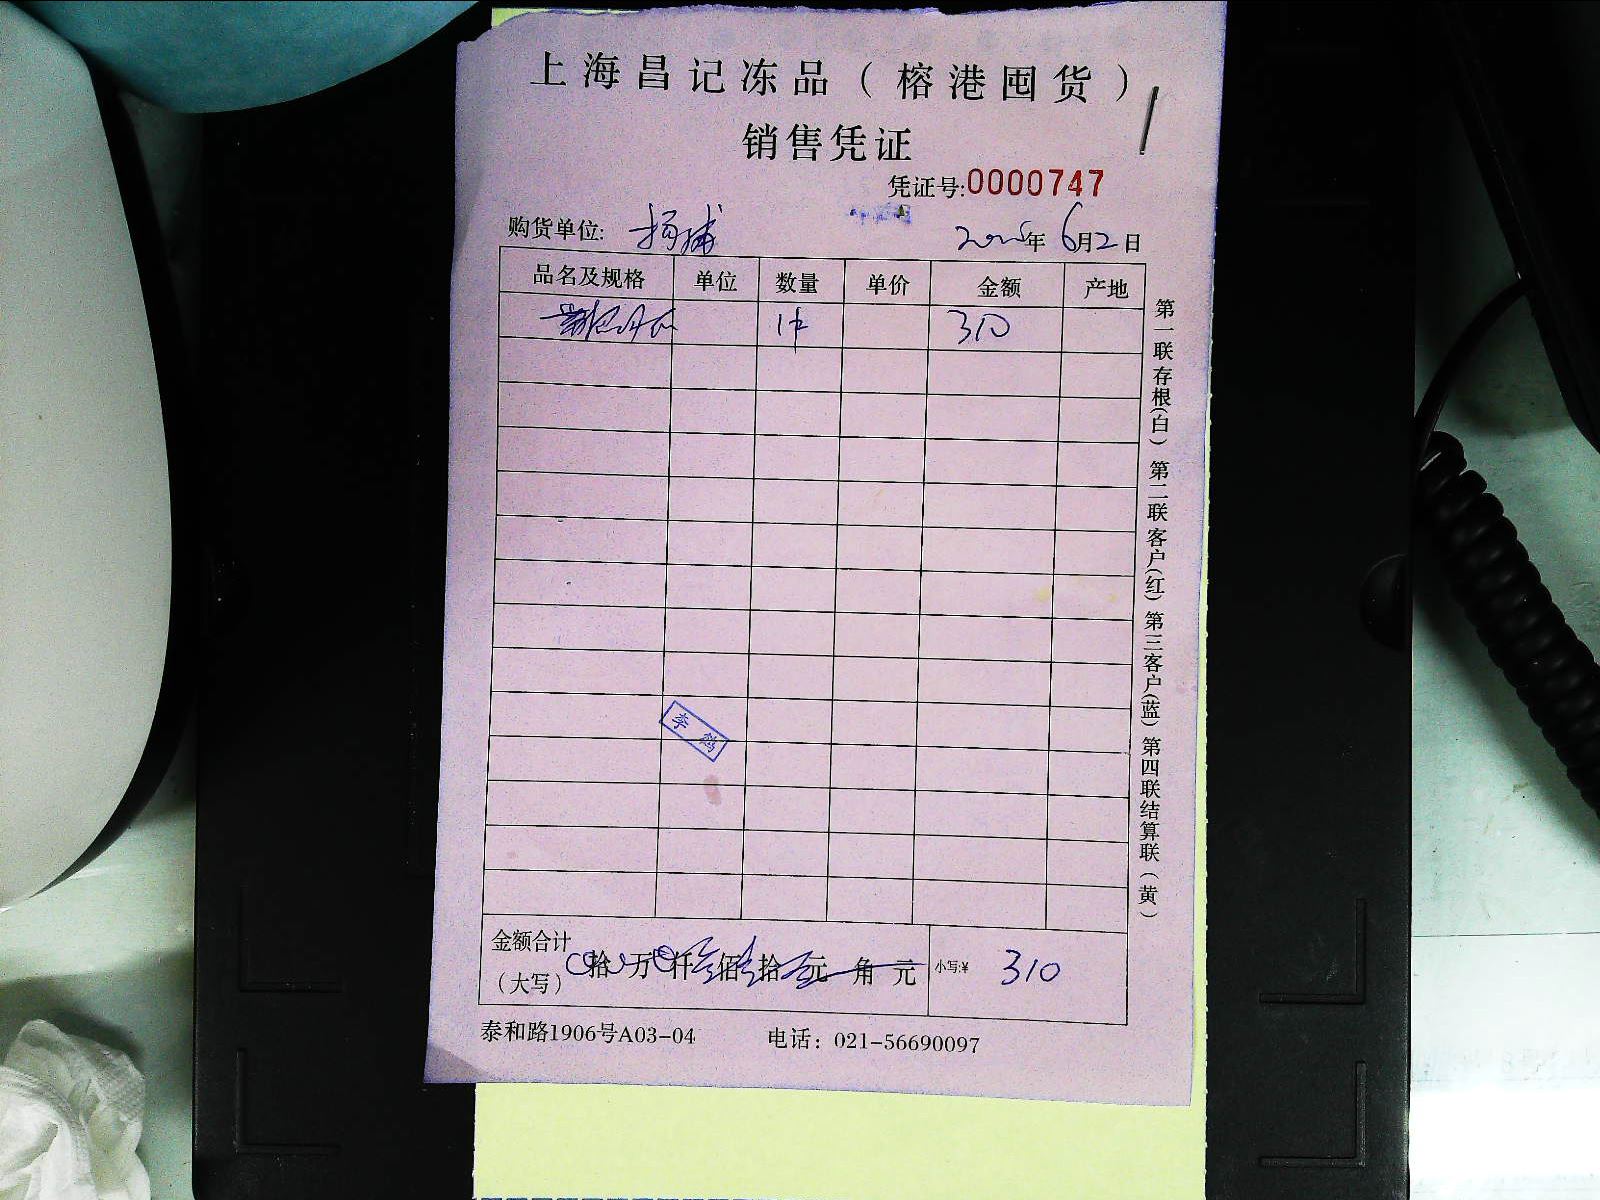 上海昌记冻品（榕港囤货）
销售凭证
凭证号:0000747
购货单位: 杨浦 2025年6月2日
品名及规格 单位 数量 单价 金额 产地
1件 310
金额合计
（大写） 拾 万 仟 佰 拾 元 角 元 小写:¥ 310
泰和路1906号A03-04 电话：021-56690097
第一联存根(白) 第二联客户(红) 第三客户(蓝) 第四联结算联（黄）